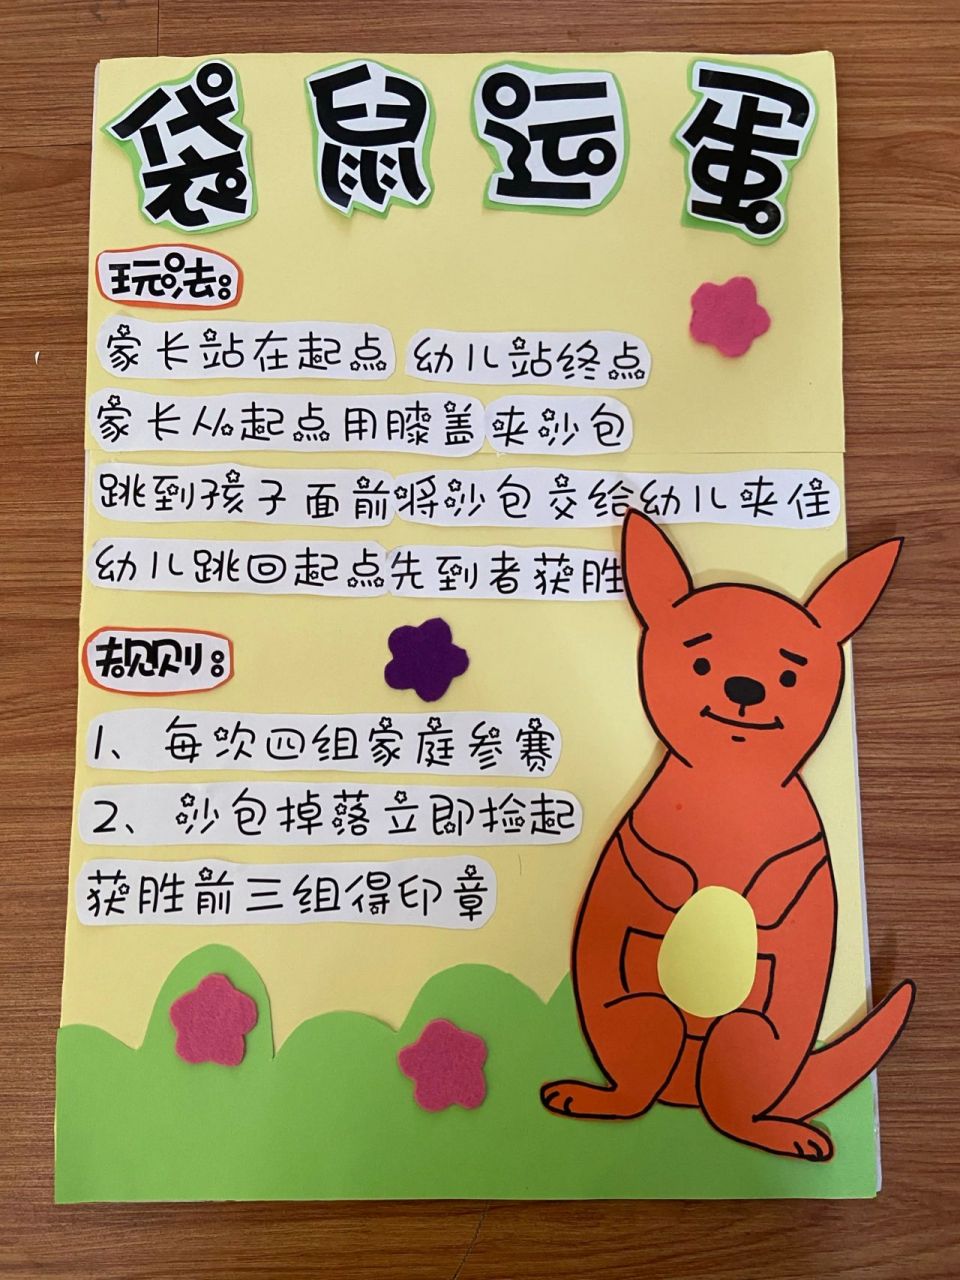 袋鼠运蛋
玩法:
家长站在起点 幼儿站终点
家长从起点用膝盖夹沙包
跳到孩子面前将沙包交给幼儿夹住
幼儿跳回起点先到者获胜
规则:
1、每次四组家庭参赛
2、沙包掉落立即捡起
获胜前三组得印章